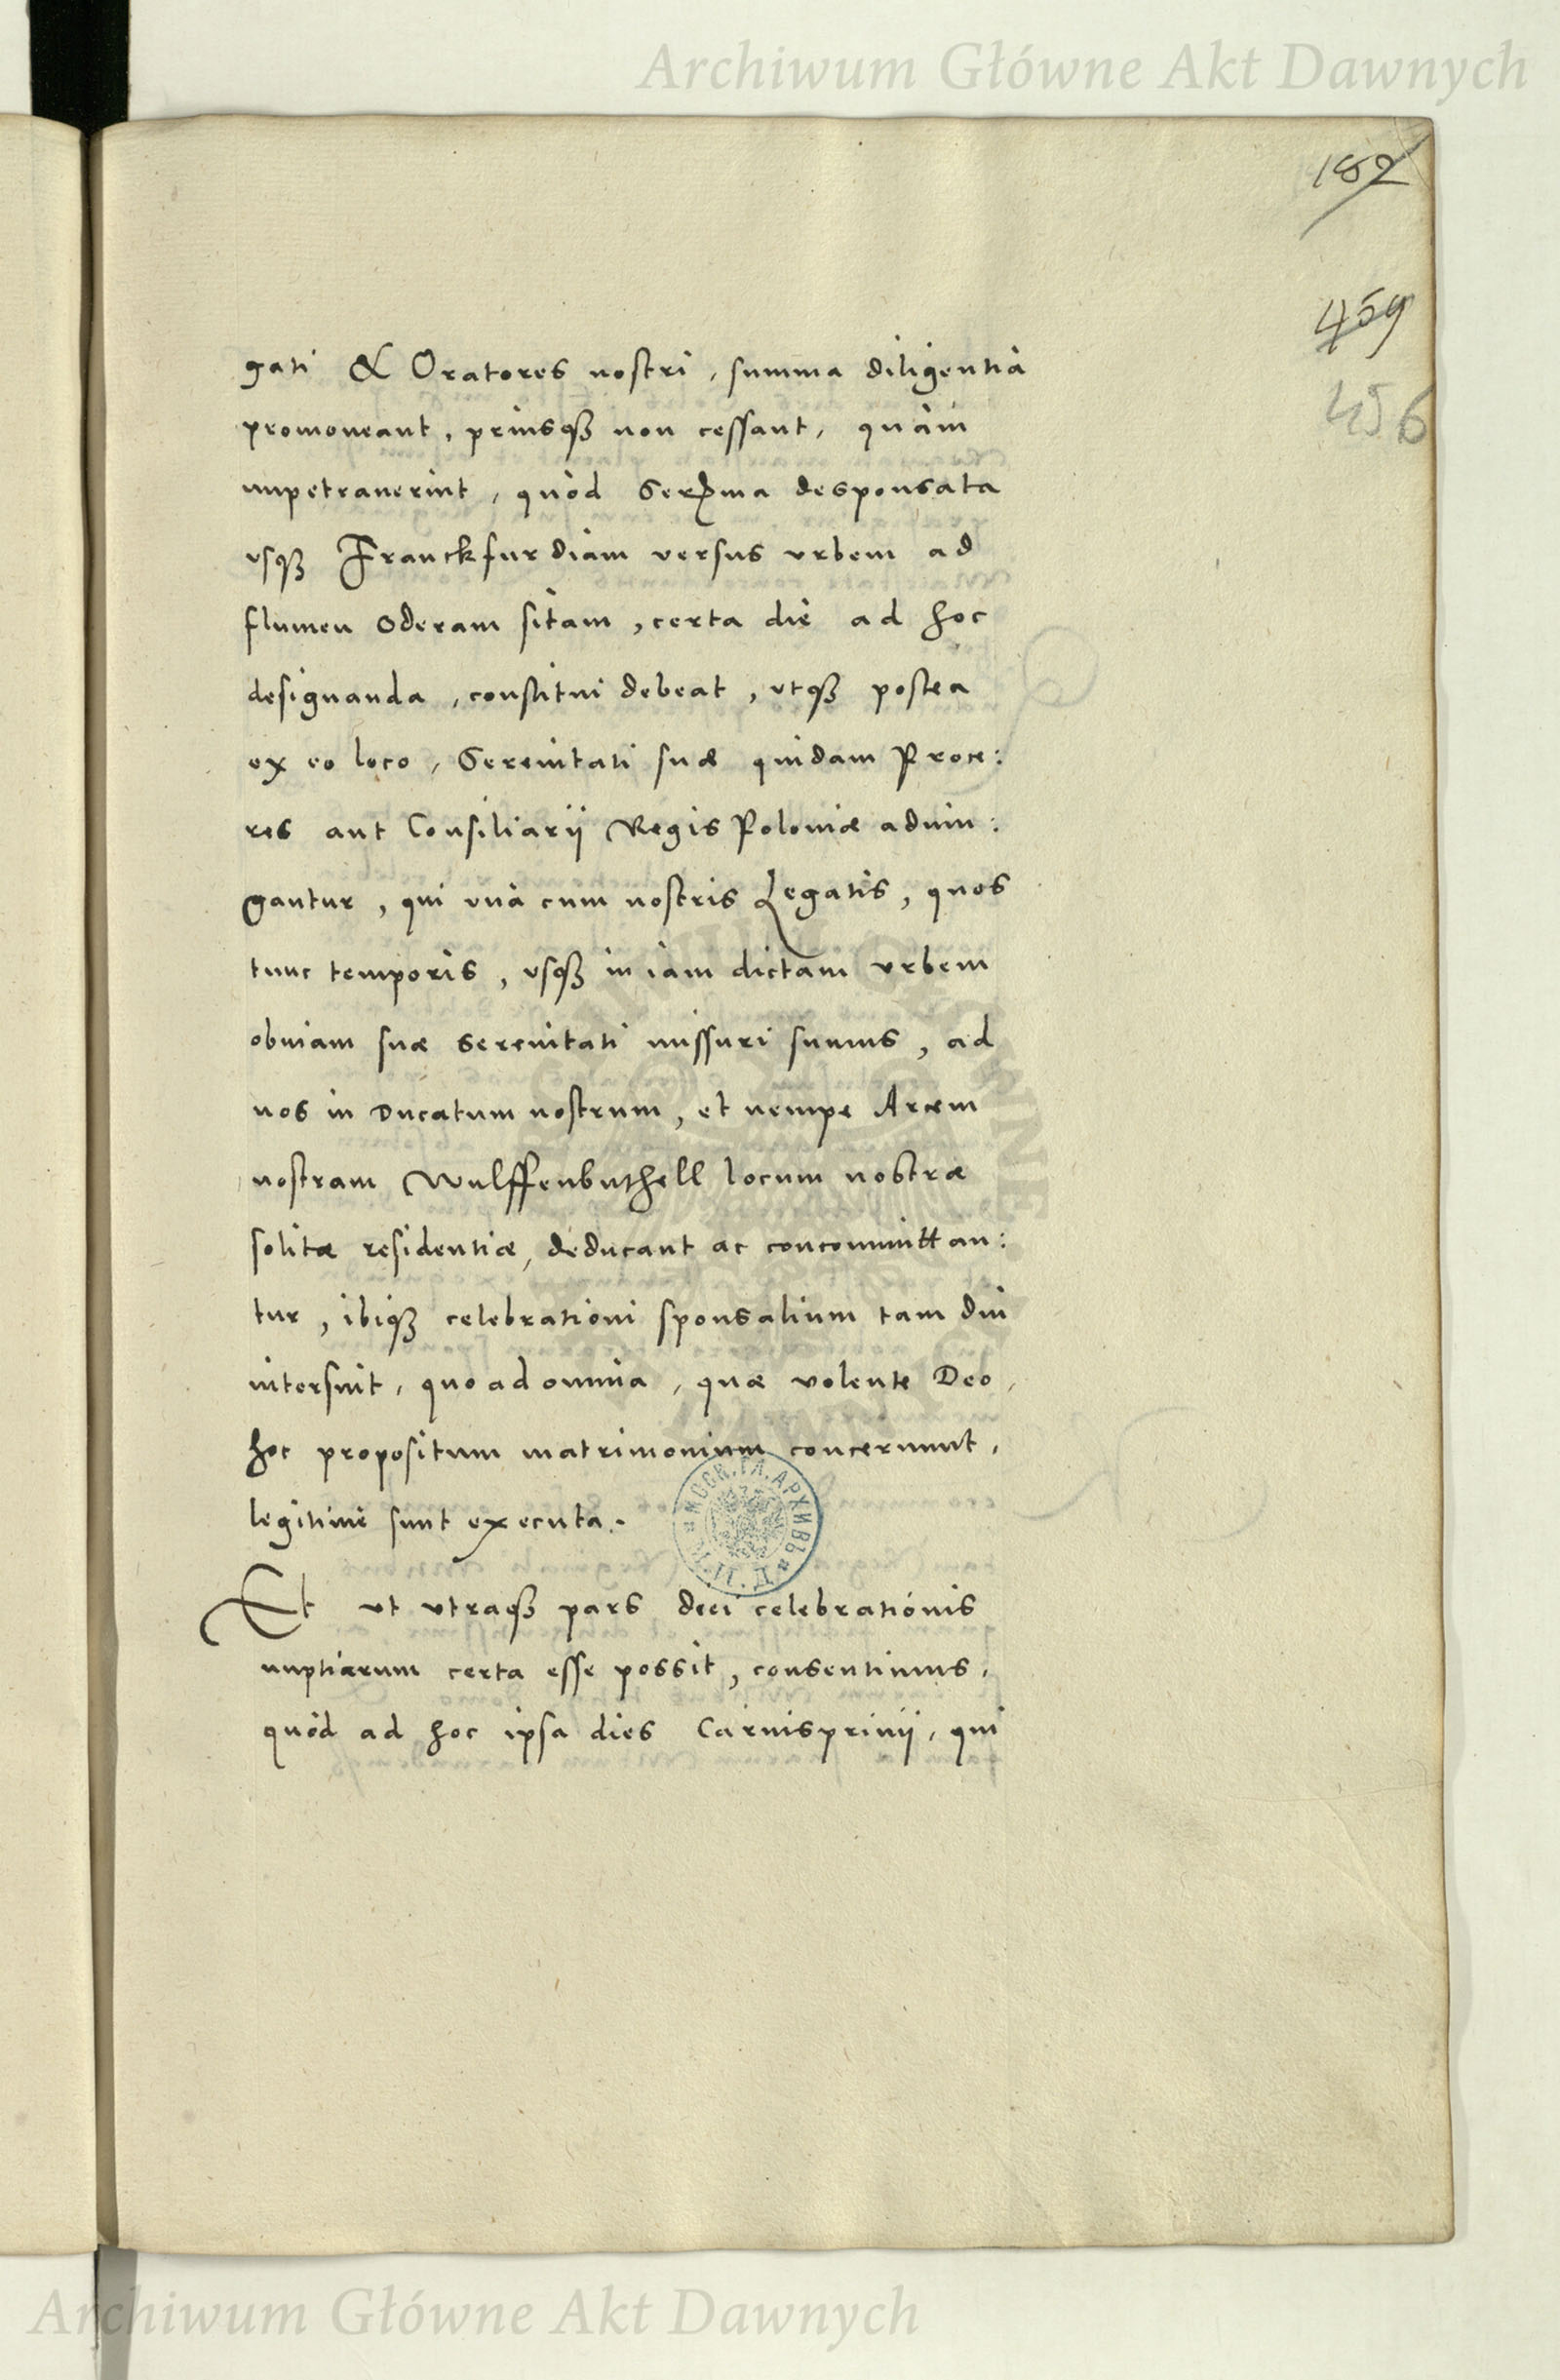 Archiwum Główne Akt Dawnych
182
459
456
gati & Oratores nostri, summa diligentia
promoveant, priusq3 non cessant, quàm
impetraverint, quòd Serma desponsata
usq3 Franckfurdiam versus urbem ad
flumen Oderam sitam, certa die ad hoc
designanda, constitui debeat, utq3 postea
ex eo loco, Serenitati suæ quidam Proce:
res aut Consiliarij Regis Poloniæ adiun:
gantur, qui unà cum nostris Legatis, quos
tunc temporis, usq3 in iam dictam urbem
obuiam suæ Serenitati missuri sumus, ad
nos in Ducatum nostrum, et nempe Arcem
nostram Wulffenbuthell locum nostræ
solitæ residentiæ, deducant ac concomittan:
tur, ibiq3 celebrationi sponsalium tam diu
intersint, quo ad omnia, quæ volente Deo,
hoc propositum matrimonium concernunt,
legitimè sunt executa.
Et ut utraq3 pars diei celebrationis
nuptiarum certa esse possit, consentimus,
quòd ad hoc ipsa dies Carnisprivij, qui
МОСК. ГЛ. АРХИВЪ
Archiwum Główne Akt Dawnych